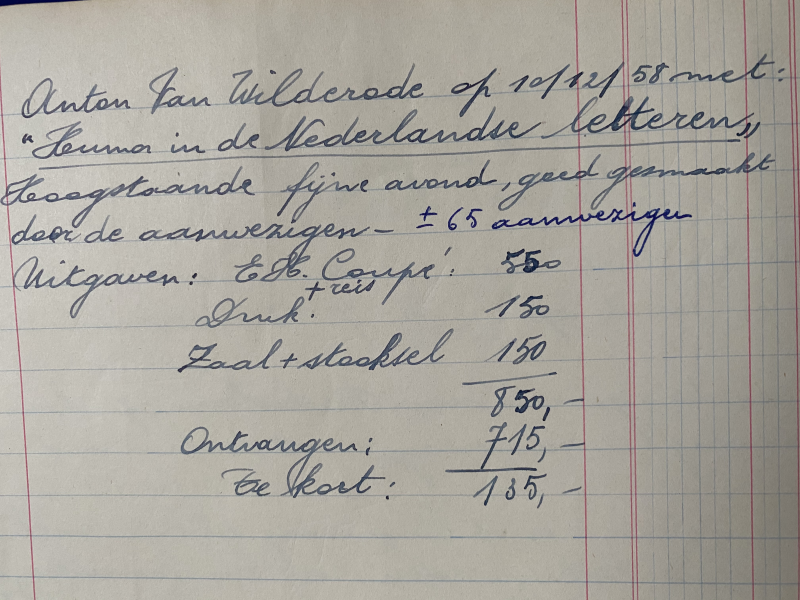 Anton Van Wilderode op 10/12/58 met:
"Humor in de Nederlandse letteren"
Hoogstaande fijne avond, goed gesmaakt
door de aanwezigen - ± 65 aanwezigen
Uitgaven: E.H. Coupé: 550
+ reis
Druk: 150
Zaal + stooksel 150
850,-
Ontvangen: 715,-
Te kort: 135,-